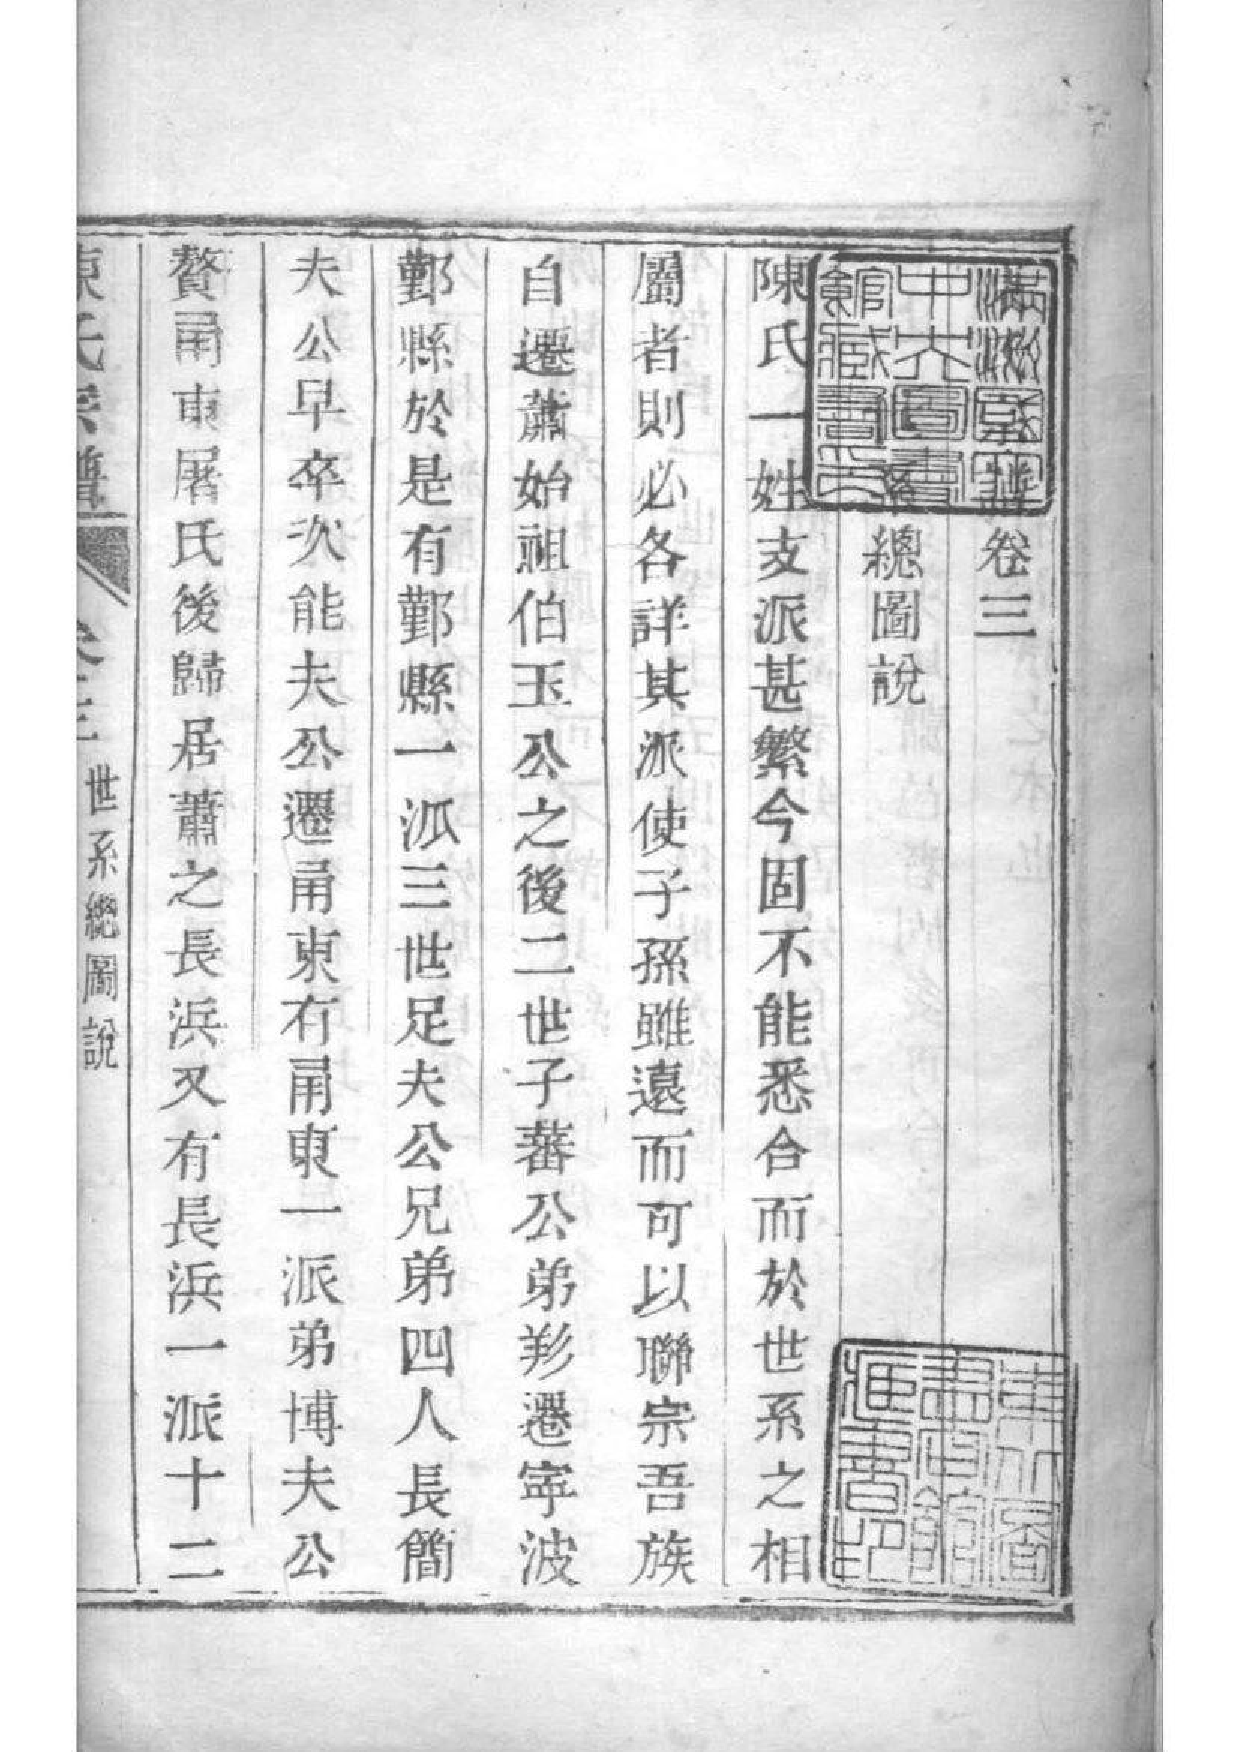 滿洲國立
中央圖書
館藏書之印
卷三
總圖說
陳氏一姓支派甚繁今固不能悉合而於世系之相
屬者則必各詳其派使子孫雖遠而可以聯宗吾族
自遷蕭始祖伯玉公之後二世子蕃公弟羙遷寧波
鄞縣於是有鄞縣一派三世足夫公兄弟四人長簡
夫公早卒次能夫公遷甬東有甬東一派弟博夫公
贅甬東屠氏後歸居蕭之長浜又有長浜一派十二
陳氏宗譜
卷三 世系總圖說
東北圖
書館
藏書印